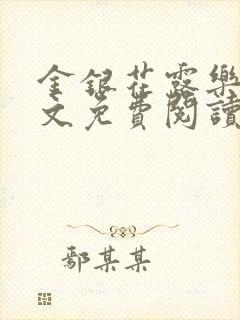 金銀花露樂
文免費閱讀
鄢某某